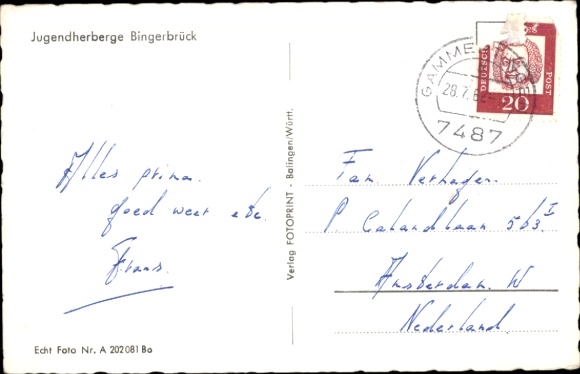 Jugendherberge Bingerbrück
GAMME
28.7.6
7487
DEUTSCHE
POST
20
Alles prima.
goed weer etc.
Frans.
Verlag FOTOPRINT - Balingen/Württ.
Fam Verhagen.
P. Calandlaan 563 I
Amsterdam. W
Nederland.
Echt Foto Nr. A 202081 Bo